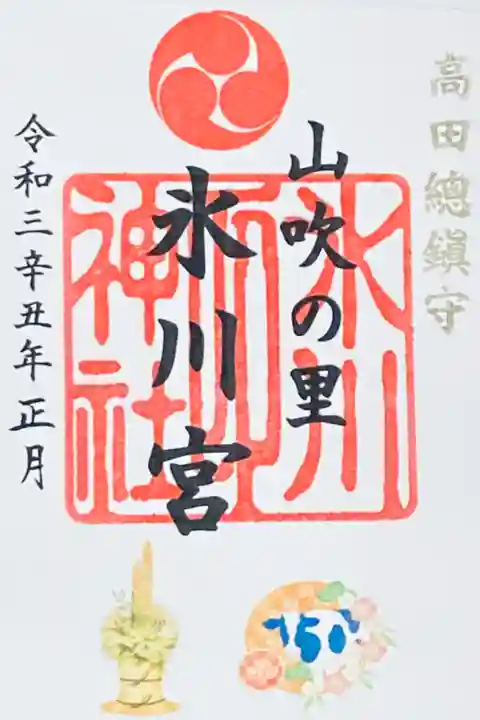 高田總鎮守
山吹の里
氷川宮
令和三辛丑年正月
氷川
神社
150